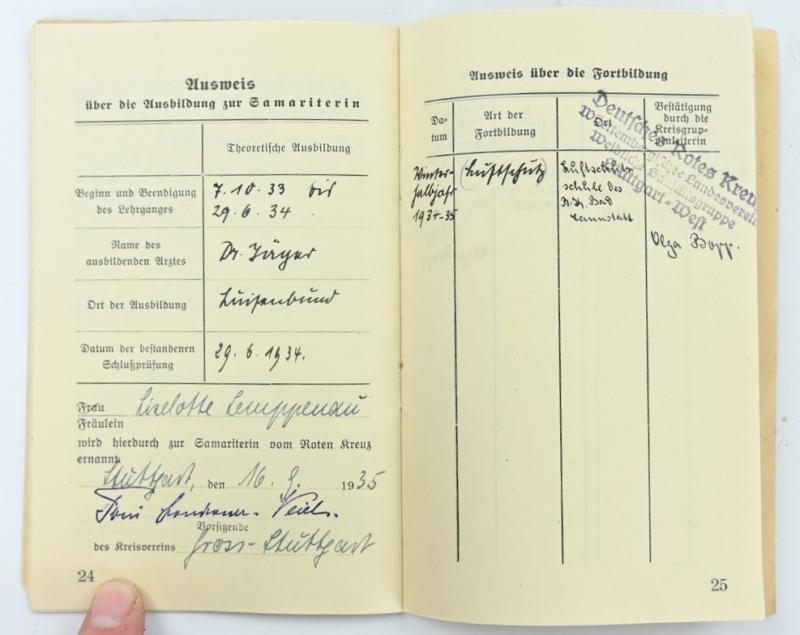 Ausweis
über die Ausbildung zur Samariterin
Theoretische Ausbildung
Beginn und Beendigung
des Lehrganges
7.10.33 bis
29.6.34.
Name des
ausbildenden Arztes
Dr. Jäger
Ort der Ausbildung
Luisenbund
Datum der bestandenen
Schlußprüfung
29.6.1934.
Frau Liselotte Lemppenau
Fräulein
wird hierdurch zur Samariterin vom Roten Kreuz
ernannt.
Stuttgart, den 16. 9. 1935
Vorsitzende
des Kreisvereins Gross-Stuttgart
24
Ausweis über die Fortbildung
Da-
tum
Art der
Fortbildung
Ort
Bestätigung
durch die
Kreisgrup-
penleiterin
Winter-
halbjahr
1934-35
Luftschutz
Luftschutz-
schule des
Bad
Cannstatt
Deutsches Rotes Kreuz
Württembergischer Landesverein
Weibliche Bereitschaftsgruppe
Stuttgart-West
Olga Bopp.
25